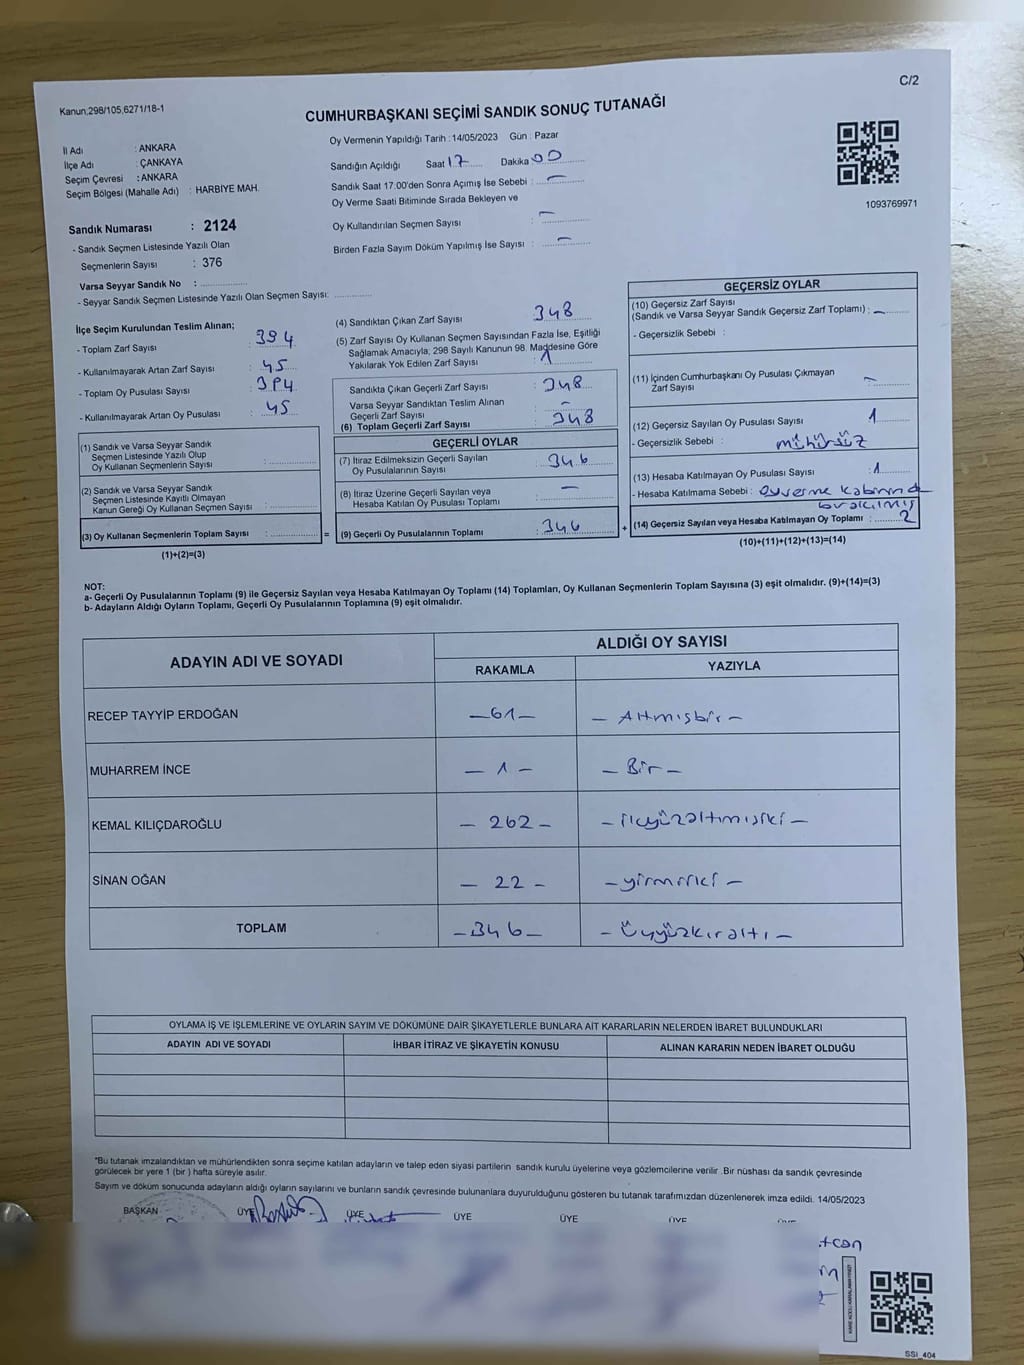 C/2
Kanun,298/105,6271/18-1
CUMHURBAŞKANI SEÇİMİ SANDIK SONUÇ TUTANAĞI
İl Adı : ANKARA
İlçe Adı : ÇANKAYA
Seçim Çevresi : ANKARA
Seçim Bölgesi (Mahalle Adı) : HARBIYE MAH.
Sandık Numarası : 2124
- Sandık Seçmen Listesinde Yazılı Olan
Seçmenlerin Sayısı : 376
Varsa Seyyar Sandık No :
- Seyyar Sandık Seçmen Listesinde Yazılı Olan Seçmen Sayısı:
Oy Vermenin Yapıldığı Tarih : 14/05/2023 Gün : Pazar
Sandığın Açıldığı Saat 17 Dakika 00
Sandık Saat 17.00'den Sonra Açımış İse Sebebi : —
Oy Verme Saati Bitiminde Sırada Bekleyen ve
Oy Kullandırılan Seçmen Sayısı : —
Birden Fazla Sayım Döküm Yapılmış İse Sayısı : —
1093769971
İlçe Seçim Kurulundan Teslim Alınan;
- Toplam Zarf Sayısı : 394
- Kullanılmayarak Artan Zarf Sayısı : 45
- Toplam Oy Pusulası Sayısı : 394
- Kullanılmayarak Artan Oy Pusulası : 45
(1) Sandık ve Varsa Seyyar Sandık
Seçmen Listesinde Yazılı Olup
Oy Kullanan Seçmenlerin Sayısı :
(2) Sandık ve Varsa Seyyar Sandık
Seçmen Listesinde Kayıtlı Olmayan
Kanun Gereği Oy Kullanan Seçmen Sayısı :
(3) Oy Kullanan Seçmenlerin Toplam Sayısı :
(1)+(2)=(3)
=
(4) Sandıktan Çıkan Zarf Sayısı : 348
(5) Zarf Sayısı Oy Kullanan Seçmen Sayısından Fazla İse, Eşitliği
Sağlamak Amacıyla, 298 Sayılı Kanunun 98. Maddesine Göre
Yakılarak Yok Edilen Zarf Sayısı : 1
Sandıkta Çıkan Geçerli Zarf Sayısı : 348
Varsa Seyyar Sandıktan Teslim Alınan
Geçerli Zarf Sayısı : —
(6) Toplam Geçerli Zarf Sayısı : 348
GEÇERLİ OYLAR
(7) İtiraz Edilmeksizin Geçerli Sayılan
Oy Pusulalarının Sayısı : 346
(8) İtiraz Üzerine Geçerli Sayılan veya
Hesaba Katılan Oy Pusulası Toplamı : —
(9) Geçerli Oy Pusulalarının Toplamı : 346
+
GEÇERSİZ OYLAR
(10) Geçersiz Zarf Sayısı
(Sandık ve Varsa Seyyar Sandık Geçersiz Zarf Toplamı) : —
- Geçersizlik Sebebi :
(11) İçinden Cumhurbaşkanı Oy Pusulası Çıkmayan
Zarf Sayısı : —
(12) Geçersiz Sayılan Oy Pusulası Sayısı : 1
- Geçersizlik Sebebi : mühürsüz
(13) Hesaba Katılmayan Oy Pusulası Sayısı : 1
- Hesaba Katılmama Sebebi : oyverme kabininde
bırakılmış
(14) Geçersiz Sayılan veya Hesaba Katılmayan Oy Toplamı : 2
(10)+(11)+(12)+(13)=(14)
NOT:
a- Geçerli Oy Pusulalarının Toplamı (9) ile Geçersiz Sayılan veya Hesaba Katılmayan Oy Toplamı (14) Toplamları, Oy Kullanan Seçmenlerin Toplam Sayısına (3) eşit olmalıdır. (9)+(14)=(3)
b- Adayların Aldığı Oyların Toplamı, Geçerli Oy Pusulalarının Toplamına (9) eşit olmalıdır.
ADAYIN ADI VE SOYADI
ALDIĞI OY SAYISI
RAKAMLA YAZIYLA
RECEP TAYYİP ERDOĞAN —61— — Altmışbir —
MUHARREM İNCE — 1 — — Bir —
KEMAL KILIÇDAROĞLU — 262 — — ikiyüzaltmışiki —
SİNAN OĞAN — 22 — — yirmiiki —
TOPLAM —346— — Üçyüzkıraltı —
OYLAMA İŞ VE İŞLEMLERINE VE OYLARIN SAYIM VE DÖKÜMÜNE DAİR ŞİKAYETLERLE BUNLARA AİT KARARLARIN NELERDEN İBARET BULUNDUKLARI
ADAYIN ADI VE SOYADI İHBAR İTİRAZ VE ŞİKAYETİN KONUSU ALINAN KARARIN NEDEN İBARET OLDUĞU
*Bu tutanak imzalandıktan ve mühürlendikten sonra seçime katılan adayların ve talep eden siyasi partilerin sandık kurulu üyelerine veya gözlemcilerine verilir .Bir nüshası da sandık çevresinde
görülecek bir yere 1 (bir ) hafta süreyle asılır.
Sayım ve döküm sonucunda adayların aldığı oyların sayılarını ve bunların sandık çevresinde bulunanlara duyurulduğunu gösteren bu tutanak tarafımızdan düzenlenerek imza edildi. 14/05/2023
BAŞKAN ÜYE ÜYE ÜYE ÜYE ÜYE
SSİ_404